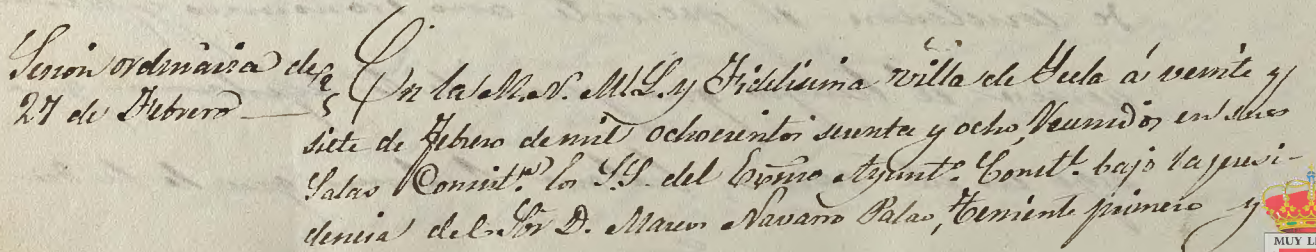 Sesion ordinaria de
27 de Febrero
En la M. N. M. L. y Fidelisima villa de Yecla á veinte y
siete de Febrero de mil ochocientos sesenta y ocho Reunidos en sus
Salas Consist.s los S.S. del Exmo Ayunt.o Const.l bajo la presi-
dencia del Sor D. Marcos Navarro Palao, Teniente primero y
MUY L